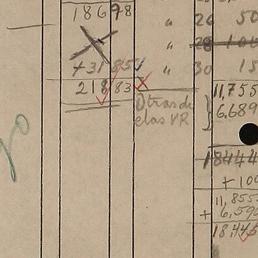 18678 " 26 50
" 28 100
+31 85 " 30 15
218 83 11,755
Otras de 6,689
elas VR
18444
+ 100
11,855
+ 6,590
18,445